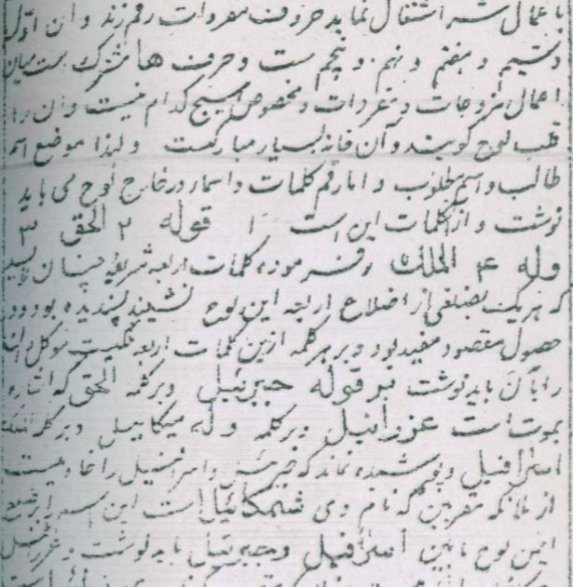 باعمال شر اشتغال نماید حروف مفردات رقم زند و آن اول
و ششم و هفتم و نهم و پنجم ست و حرف ها مشترک ست میان
اعمال مزوجات و مفردات و مخصوص هیچ کدام نیست و آن را
قلب لوح گویند و آن خانه بسیار مبارکست و لهذا موضع اسم
طالب و اسم مطلوب و اما رقم کلمات و اسما در خارج لوح می باید
نوشت و آن کلمات این است ۱ قوله ۲ الحق ۳
وله ۴ الملك و رموزه کلمات اربعه شریفه چنان
که هر یک بضلعی از اضلاع اربعه این لوح نشیند پسندیده بود و در
حصول مقصود مفید بود و بر هر کلمه ازین کلمات اربعه ملکیست موکل
را با آن باید نوشت بر قوله جبرئیل و بر کلمه الحق که
بموت است عزرائیل و بر کلمه وله میکائیل و بر کلمه
اسرافیل و پوشیده نماند که جبرئیل و اسرافیل را
از ملائکه مقربین که نام وی شمکائیل است این
این لوح مابین اسرافیل و جبرئیل باید نوشت و